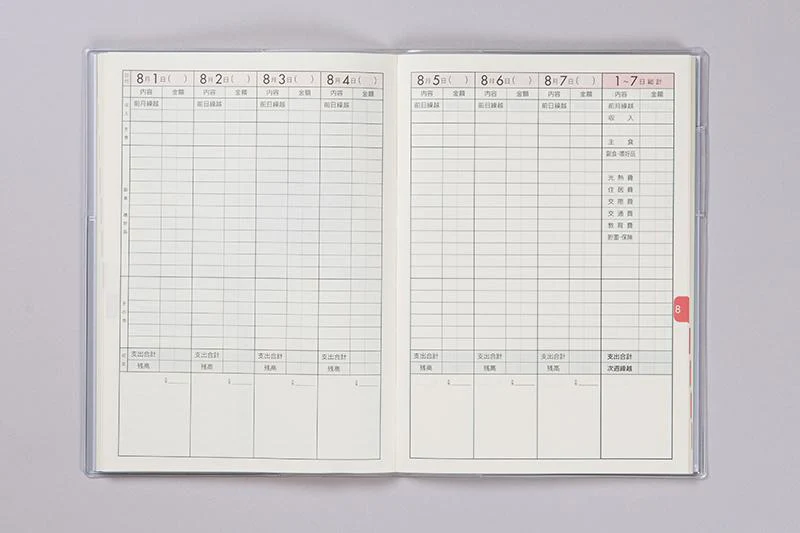 日付 8月1日( ) 8月2日( ) 8月3日( ) 8月4日( )
内容 金額 内容 金額 内容 金額 内容 金額
収入 前月繰越 前日繰越 前日繰越 前日繰越
主食
副食・嗜好品
その他
支出合計 支出合計 支出合計 支出合計
残高 残高 残高 残高
8月5日( ) 8月6日( ) 8月7日( ) 1~7日総計
内容 金額 内容 金額 内容 金額 内容 金額
前日繰越 前日繰越 前日繰越 前月繰越
収入
主食
副食・嗜好品
光熱費
住居費
交際費
交通費
教育費
貯蓄・保険
支出合計 支出合計 支出合計 支出合計
残高 残高 残高 次週繰越
8